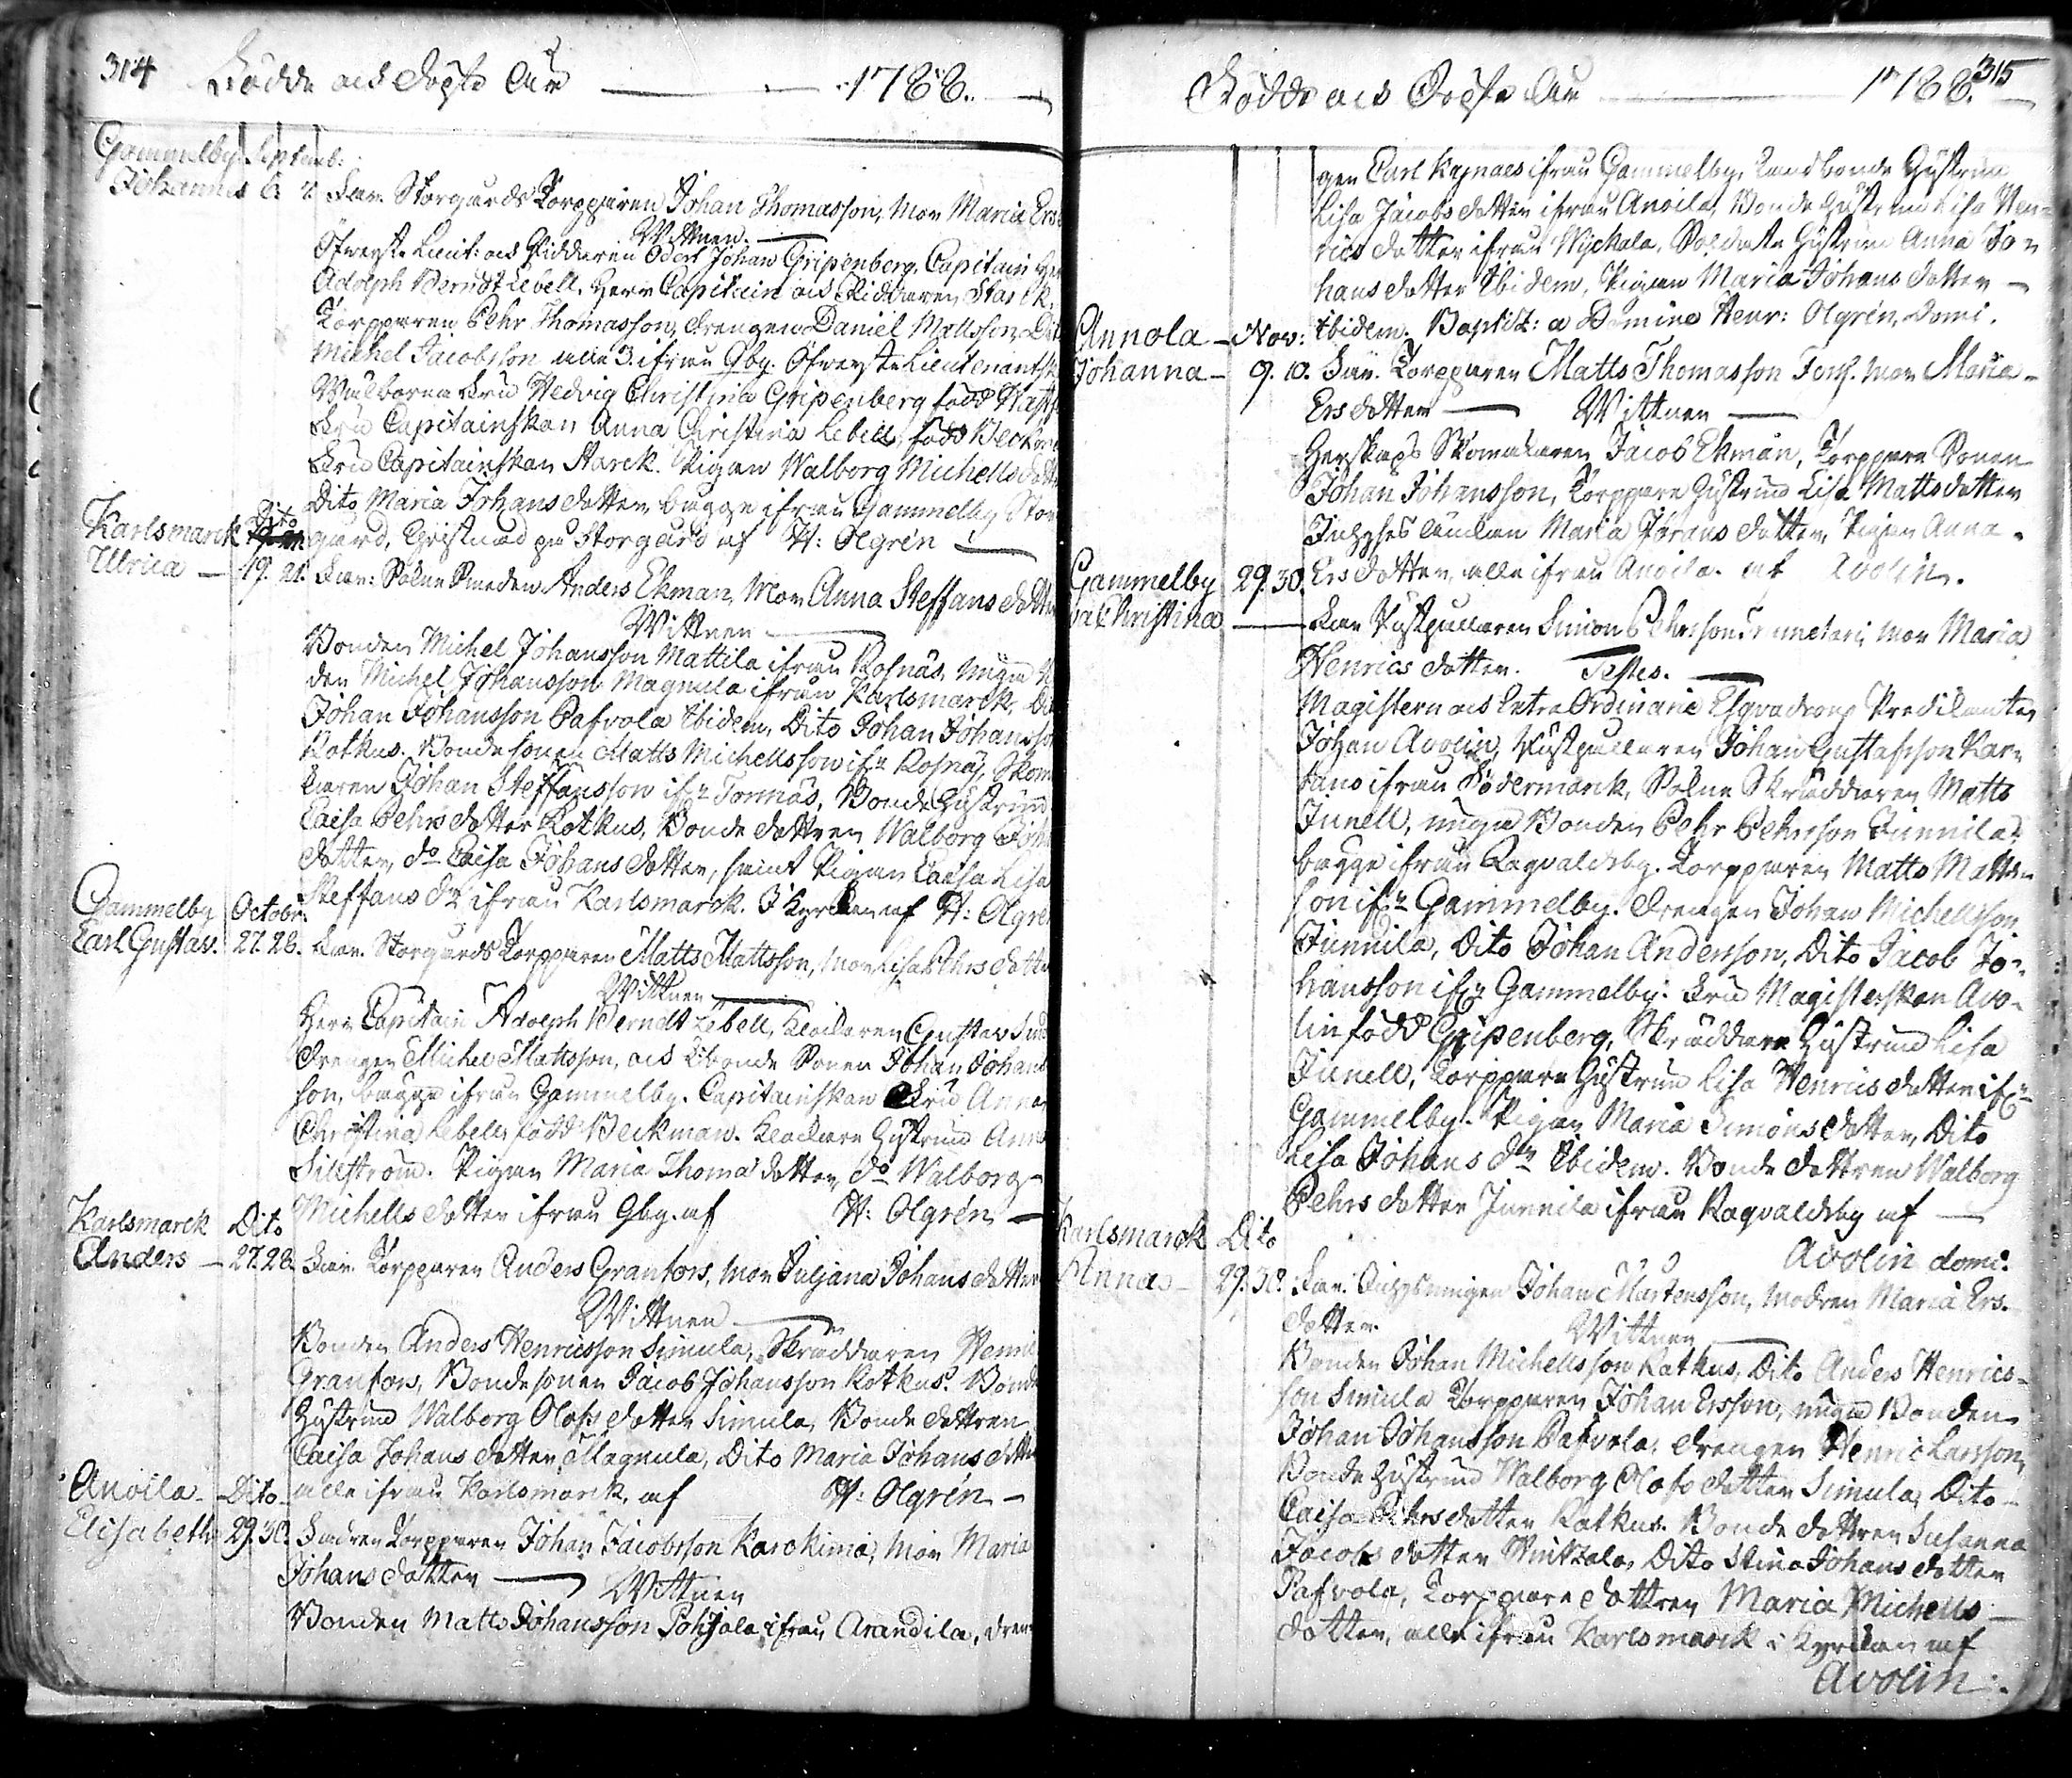 314 Födde och Döpte Åhr 1788.
Gammelby Septemb:
Johannes 6. 7. Fav. Storgårds Torpparen Johan Thomasson, Mor Maria Ers
Wittnen
Öfverst Lieut: och Riddaren Odert Johan Gripenberg, Capitain Her
Adolph Berndt Lebell, Herr Capitain och Riddaren Starck.
Torpparen Pehr Thomasson, Drengen Daniel Mattsson, Dit
Michel Jacobsson alle 3. ifrån Gby. Öfverste Lieutenantsk
Wälborna Fru Hedvig Christina Gripenberg född
Fru Capitainskan Anna Christina Lebell, född Beckm
Fru Capitainskan Starck. Pigan Walborg Michells dott
Dito Maria Johans dotter begge ifrån Gammelby Stor
Karlsmarck Dito gård, Christnad på Storgård af H: Olgrén
Ulrica 19. 21. Fav: Sokne Smeden Anders Ekman, Mor Anna Steffans dotter
Wittnen
Bonden Michel Johansson Mattila ifrån Rosnäs, unga
den Michel Johansson Magnula ifrån Karlsmarck, Dit
Johan Johansson Pafvola Ibidem, Dito Johan Johansson
Kotkus. Bonde sonen Matts Michellsson ifn Rosnäs, Skom
karen Johan Steffansson ifn Tornnäs, Bonde Hustrun
Caisa Pehrs dotter Kotkus, Bonde dottren Walborg Joh
dotter, do Caisa Johans dotter, samt Pigan Caisa Lisa
Steffans dr ifrån Karlsmarck. I Kyrkan af H: Olgrén
Gammelby Octobr:
Carl Gustav. 27. 28. Fav. Storgårds Torpparen Matts Mattsson, Mor Lisa Pehrs dotter
Wittnen
Herr Capitain Adolph Berndt Lebell, Klockaren Gustav
Drengen Michel Mattsson, och Bonde Sonen Johan Johans
son, begge ifrån Gammelby. Capitainskan Fru Anna
Christina Lebell, född Beckman. Klockare Hustrun Anna
Silfström. Pigan Maria Thoma dotter, do Walborg
Michells dotter ifrån Gby. af H: Olgrén
Karlsmarck Dito
Anders 27. 28. Fav. Torpparen Anders Granfors, Mor Juljana Johans dotter
Wittnen
Bonden Anders Henricsson Simula, Skräddaren Henric
Granfors, Bonde sonen Jacob Johansson Kotkus. Bonde
Hustrun Walborg Olofs dotter Simula, Bonde dottren
Caisa Johans dotter Magnula, Dito Maria Johans dotter
alle ifrån Karlsmarck, af H: Olgrén
Anoila Dito
Elisabeth 29. 30. Fadren Torpparen Johan Jacobsson Karokima, Mor Maria
Johans dotter Wittnen
Bonden Matts Johansson Pohjola ifrån Arandila, Dren
Födde och Döpte Åhr 1788. 315
gen Carl Kajnaes ifrån Gammelby, Landbonde Hustrun
Lisa Jacobs dotter ifrån Anoila, Bonde Hustrun Lisa Hen-
rics dotter ifrån Wyckala, Soldate Hustrun Anna Jo-
hans dotter Ibidem, Pigan Maria Johans dotter
Annola Nov: Ibidem. Baptist: a Domino Henr: Olgrén, Domi.
Johanna 9. 10. Fav. Torpparen Matts Thomasson Fors. Mor Maria
Ers dotter Wittnen
Herskaps Skomakaren Jacob Ekman, Torppare Sonen
Johan Johansson, Torppare Hustrun Lisa Matts dotter
Inhyses Enkan Maria Jörans dotter, Pigan Anna
Gammelby 29. 30. Ers dotter, alle ifrån Anoila. af Avolin.
Christina Fav Påstpällaren Simon Pehrsson Mor Maria
Henrics dotter. Testes.
Magistern och Extra Ordinarie Esqvadrons Predikanten
Johan Avolin, Påstpällaren Johan Gustafsson Kar-
tano ifrån Södermarck, Sokne Skräddaren Matts
Junell, unga Bonden Pehr Pehrsson Junnila
begge ifrån Ragvaldsby. Torpparen Matts Matts-
son ifn Gammelby. Drengen Johan Michellsson
Junnila, Dito Johan Andersson, Dito Jacob Jo-
hansson ifn Gammelby. Fru Magisterskan Avo-
lin född Gripenberg, Skräddare Hustrun Lisa
Junell, Torppare Hustrun Lisa Henrics dotter ifn
Gammelby. Pigan Maria Simons dotter, Dito
Lisa Johans dr Ibidem. Bonde dottren Walborg
Pehrs dotter Junnila ifrån Ragvaldsby af
Karlsmarck Dito Avolin domi.
Anna 29. 30. Fav. Inhysingen Johan Mårtensson, Modren Maria Ers
dotter. Wittnen
Bonden Johan Michellsson Kotkus, Dito Anders Henrics-
son Simula Torpparen Johan Ersson, unga Bonden
Johan Johansson Pafvola, Drengen Henric Larsson,
Bonde Hustrun Walborg Olofs dotter Simula, Dito
Caisa Pehrs dotter Kotkus. Bonde dottren Susanna
Jacobs dotter Dito Stina Johans dotter
Pafvola, Torppare dottren Maria Michells
dotter, alle ifrån Karlsmarck i Kyrkan af
Avolin.